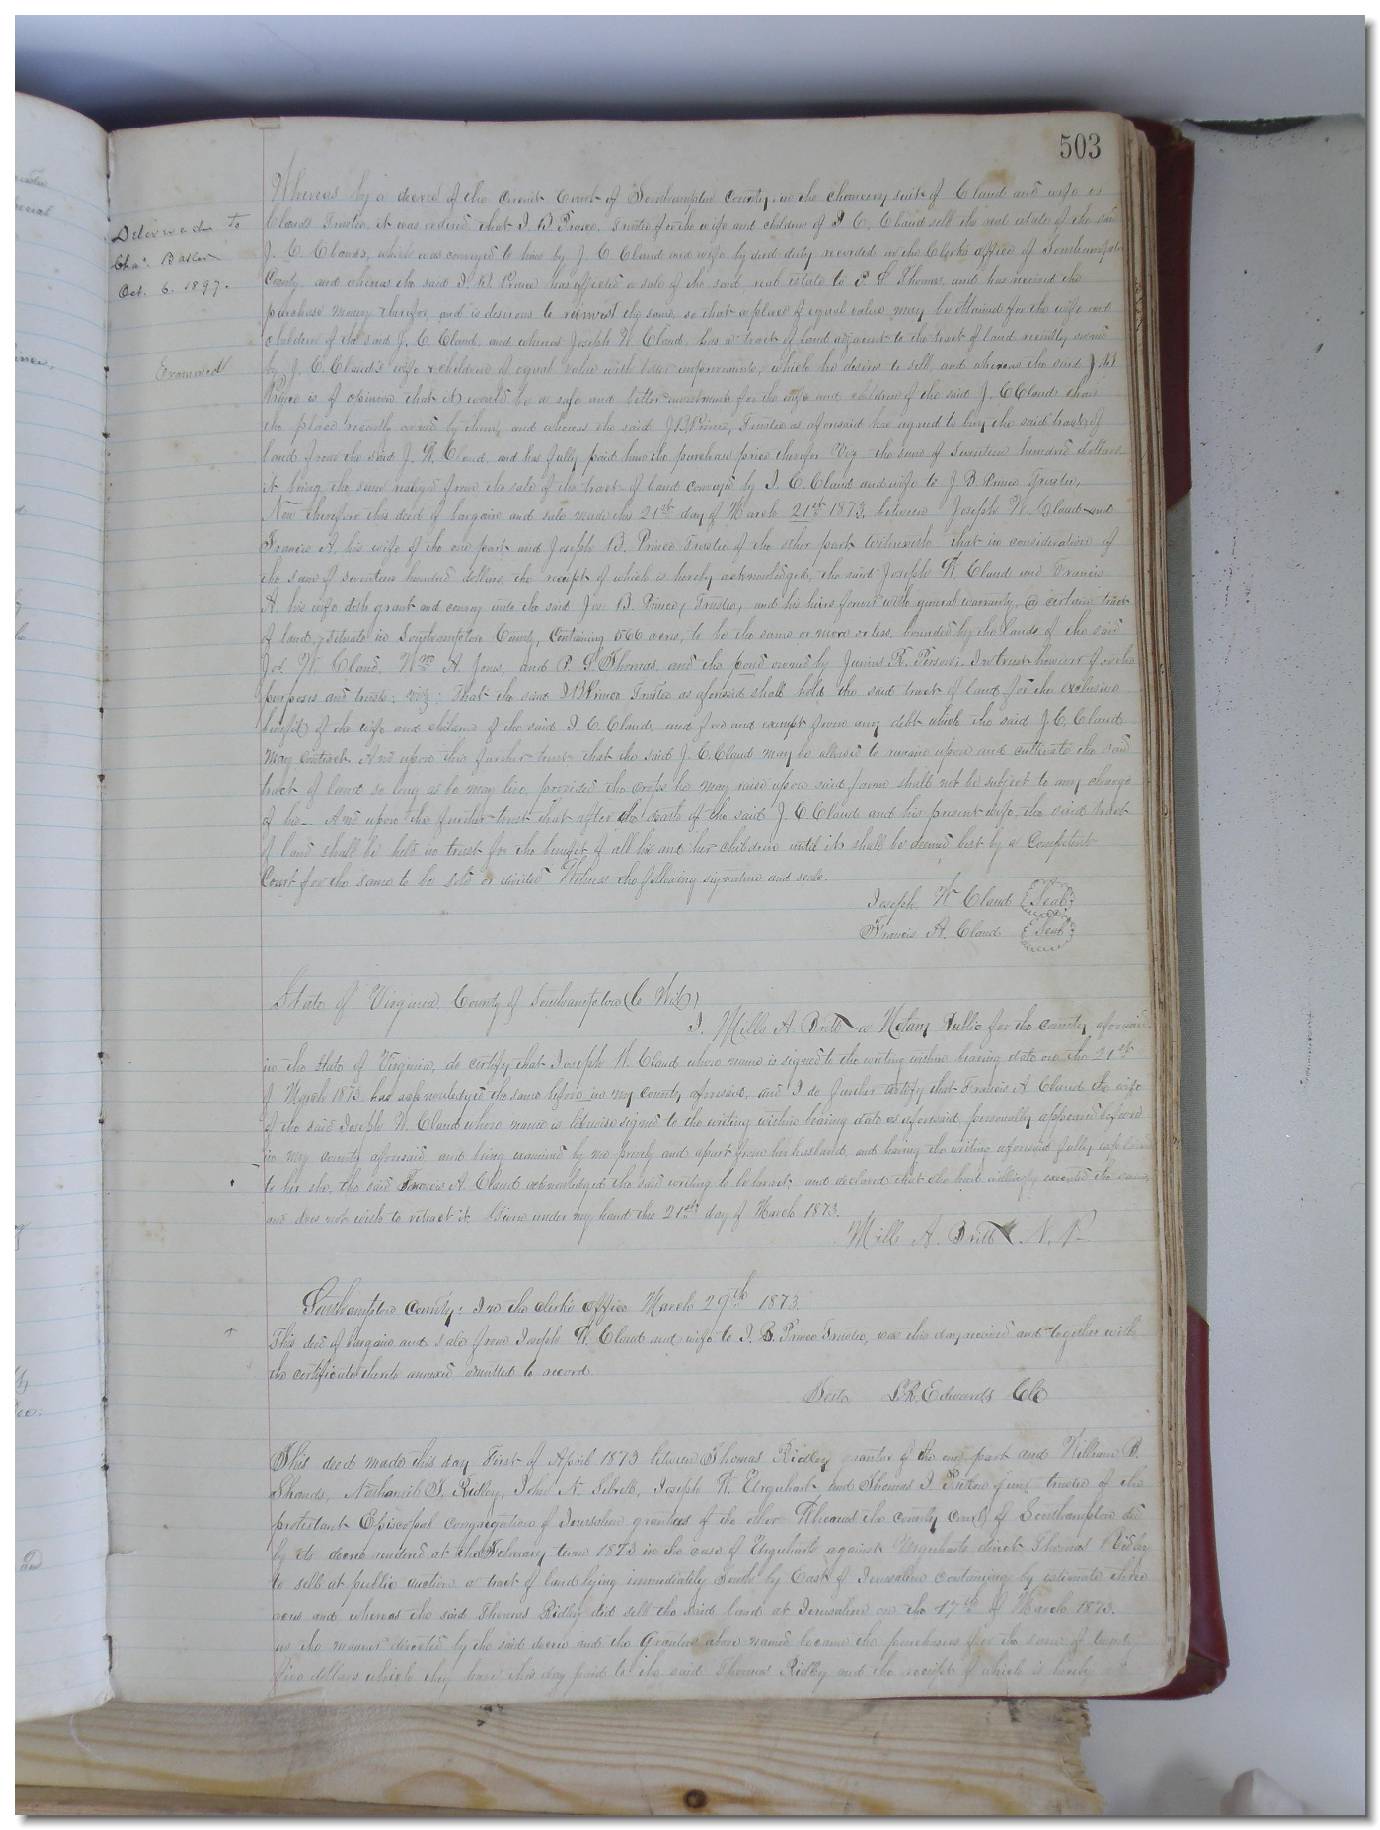 503
Delivered to
Chas. Barker
Oct. 6. 1897.
Examined
Whereas by a decree of the Circuit Court of Southampton County, in the chancery suit of Claud and wife vs
Clauds Trustee, it was ordered that J. B. Prince, Trustee for the wife and children of J. C. Claud sell the real estate of the said
J. C. Claud, which was conveyed to him by J. C. Claud and wife by deed duly recorded in the Clerks office of Southampton
County, and whereas the said J. B. Prince has effected a sale of the said real estate to P. G. Thomas, and has received the
purchase money therefor, and is desirous to reinvest the same, so that a place of equal value may be obtained for the wife and
children of the said J. C. Claud, and whereas Joseph W. Claud, has a tract of land adjacent to the tract of land recently owned
by J. C. Claud's wife & children of equal value with better improvements, which he desires to sell, and whereas the said J. B.
Prince is of opinion that it would be a safe and better investment for the wife and children of the said J. C. Claud than
the place recently owned by them, and whereas the said J. B. Prince, Trustee as aforesaid has agreed to buy the said tract of
land from the said J. W. Claud, and has fully paid him the purchase price therefor Viz the sum of Seventeen hundred dollars,
it being the sum realized from the sale of the tract of land conveyed by J. C. Claud and wife to J. B. Prince Trustee,
Now therefore this deed of bargain and sale made this 21st day of March 21st 1873, between Joseph W. Claud and
Francis A. his wife of the one part and Joseph B. Prince Trustee of the other part Witnesseth that in consideration of
the sum of seventeen hundred dollars, the receipt of which is hereby acknowledged, the said Joseph W. Claud and Francis
A. his wife doth grant and convey unto the said Jos B. Prince, Trustee, and his heirs forever with general warranty, a certain tract
of land, situate in Southampton County, Containing 566 acres, to be the same or more or less, bounded by the lands of the said
Jos. W. Claud, Wm A. Jones, and P. G. Thomas, and the pond owned by Junius R. Person. In trust however for the
purposes and trusts; viz; That the said J. B. Prince Trustee as aforesaid shall hold the said tract of land for the exclusive
benefit of the wife and children of the said J. C. Claud, and free and exempt from any debt which the said J. C. Claud
may contract. And upon this further trust that the said J. C. Claud may be allowed to remain upon and cultivate the said
tract of land so long as he may live, provided the crops he may raise upon said farm shall not be subject to any charge
of his. And upon the further trust that after the death of the said J. C. Claud and his present wife, the said tract
of land shall be held in trust for the benefit of all his and her children until it shall be deemed best by a Competent
Court for the same to be sold or divided. Witness the following signatures and seals.
Joseph W Claud {Seal}
Francis A. Claud {Seal}
State of Virginia County of Southampton (to Wit)
I, Mills A Britt a Notary Public for the county aforesaid
in the State of Virginia, do certify that Joseph W. Claud whose name is signed to the writing within bearing date on the 21st
of March 1873 has acknowledged the same before in my county aforesaid, and I do further certify that Francis A Claud the wife
of the said Joseph W. Claud whose name is likewise signed to the writing within bearing date as aforesaid, personally appeared before
in my county aforesaid, and being examined by me privily and apart from her husband, and having the writing aforesaid fully explained
to her she, the said Francis A. Claud acknowledged the said writing to be her act, and declared that she had willingly executed the same,
and does not wish to retract it. Given under my hand this 21st day of March 1873.
Mills A. Britt N. P.
Southampton County: In the clerk's office March 29th 1873.
This deed of bargain and sale from Joseph W. Claud and wife to J. B. Prince Trustee, was this day received and together with
the certificate thereto annexed admitted to record.
Teste L. R. Edwards Clk
This deed made this day First of April 1873 between Thomas Ridley grantor of the one part and William B.
Shands, Nathaniel F. Ridley, John N. Sebrell, Joseph W. Urquhart and Thomas J. Pretlow jun, trustee of the
protestant Episcopal congregation of Jerusalem grantees of the other Whereas the county court of Southampton did
by its decree rendered at the February term 1873 in the case of Urquharts against Urquharts direct Thomas Ridley
to sell at public auction a tract of land lying immediately South by East of Jerusalem containing by estimate three
acres and whereas the said Thomas Ridley did sell the said land at Jerusalem on the 17th of March 1873.
in the manner directed by the said decree and the Grantees above named became the purchasers for the sum of twenty
five dollars which they have this day paid to the said Thomas Ridley and the receipt of which is hereby